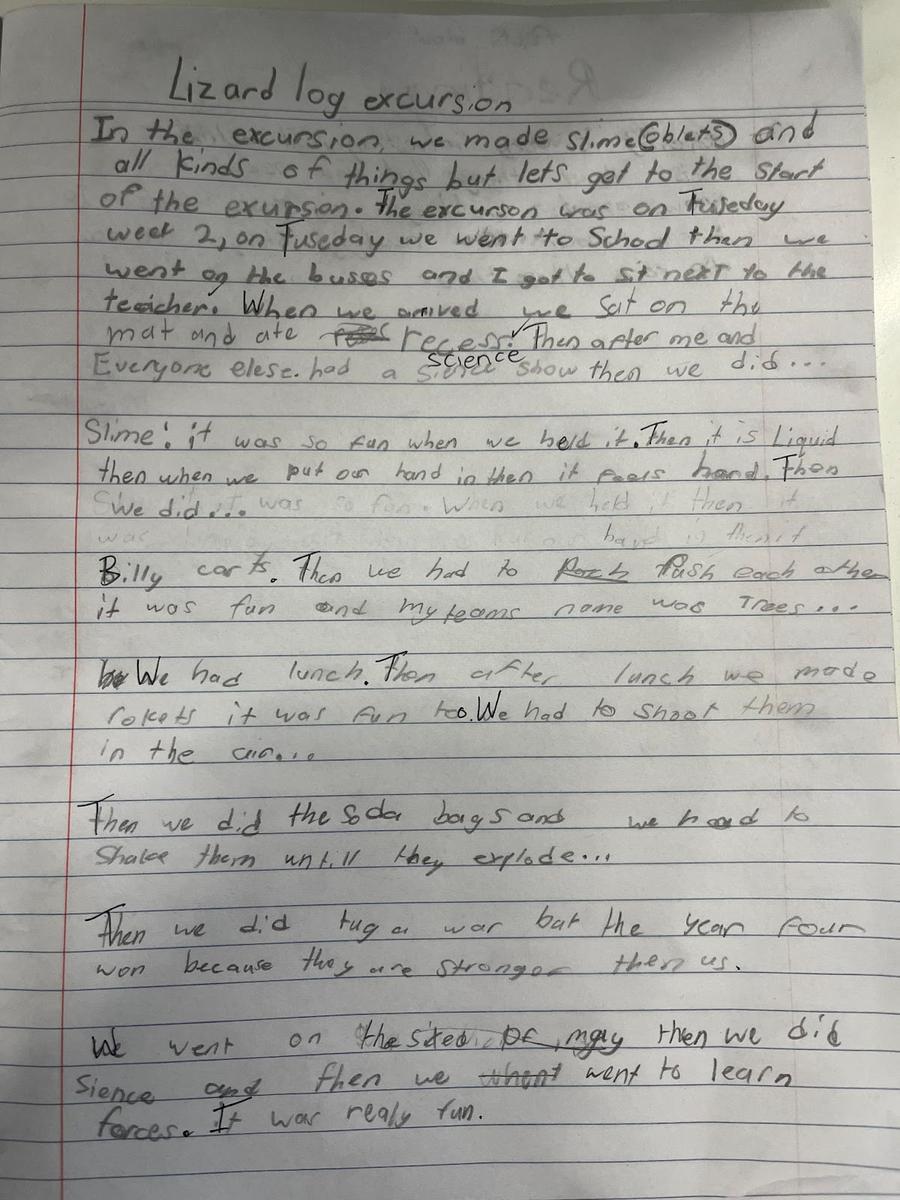 Lizard log excursion
In the excursion, we made slime(oblets) and
all kinds of things but lets get to the start
of the exurson. The excurson was on Tuseday
week 2, on Tuseday we went to School then we
went on the buses and I got to sit next to the
teacher. When we arrived we sat on the
mat and ate recess. Then after me and
Everyone elese. had a science show then we did...
Slime: it was so fun when we held it. Then it is Liquid
then when we put our hand in then it feels hard. Then
We did... was so fun. When we held it then it
was hand in then it
Billy carts. Then we had to Push each other
it was fun and my teams name was Trees...
We had lunch. Then after lunch we made
rokets it was fun too. We had to shoot them
in the air...
Then we did the soda bags and we had to
Shake them untill they explode...
Then we did tug a war but the year four
won because they are stronger then us.
We went on the then we did
Sience and then we went to learn
forces. It was realy fun.